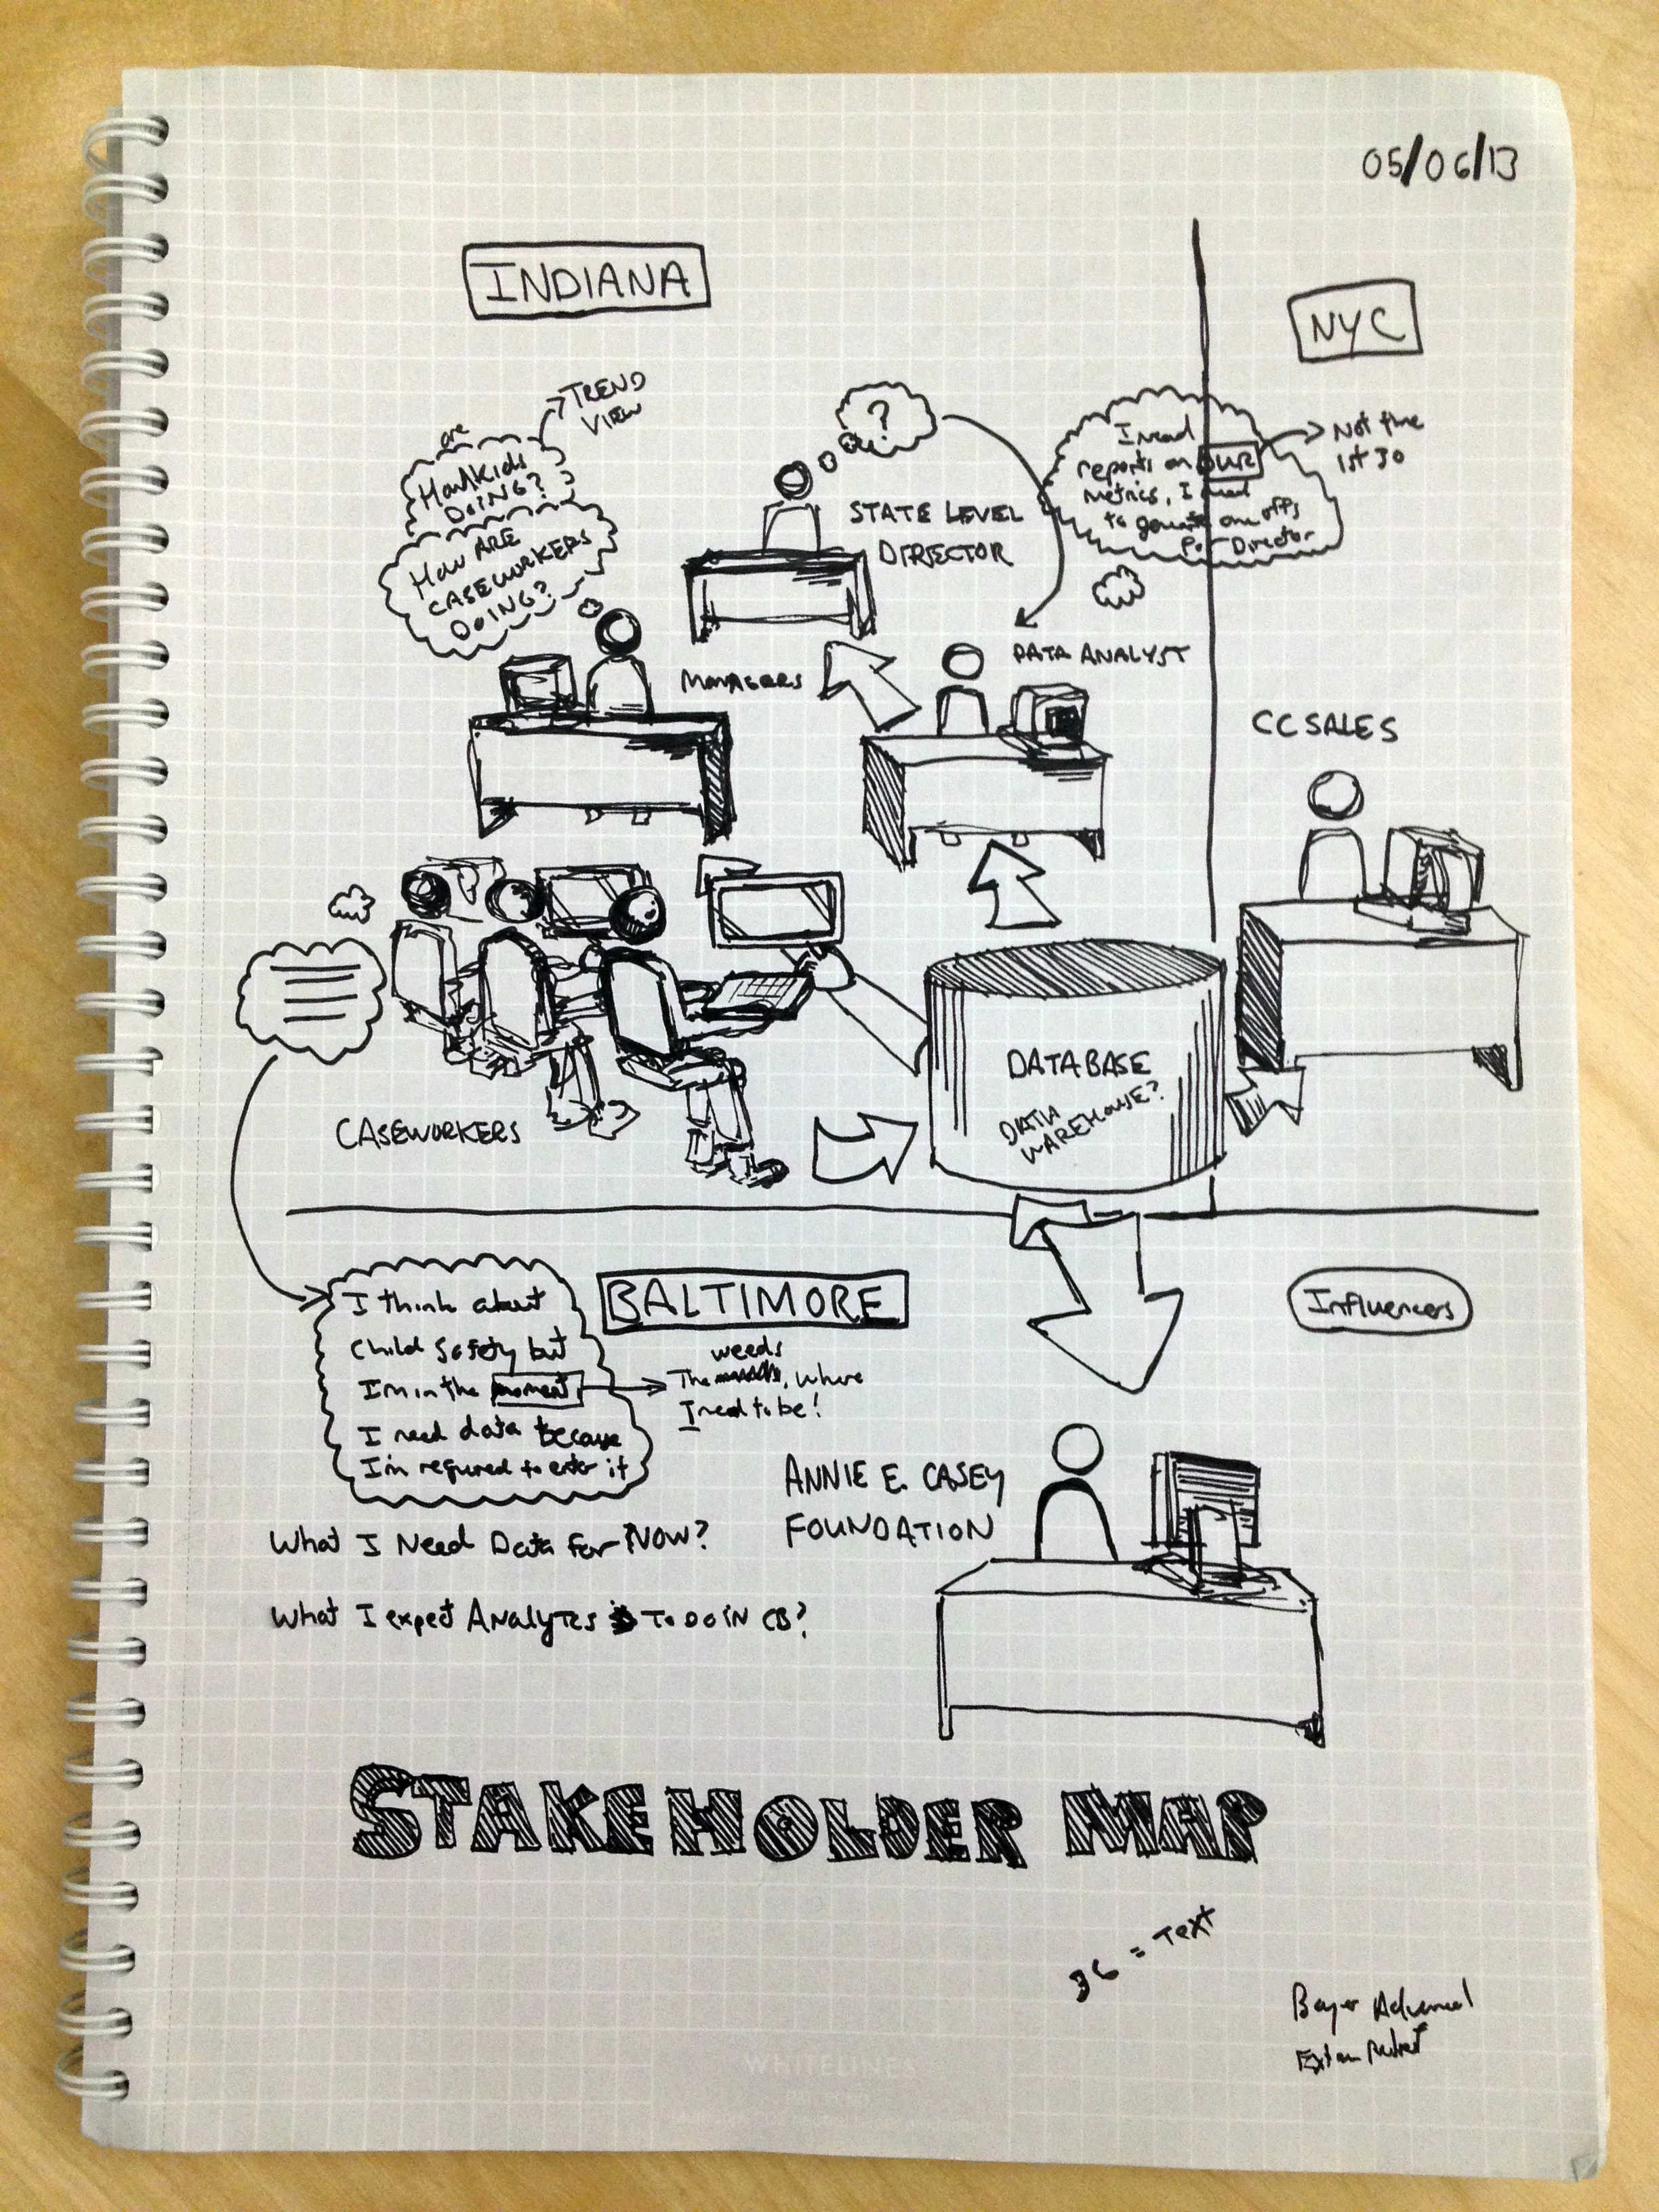 05/06/13
INDIANA
NYC
TREND
VIEW
are
How Kids
DOING?
HOW ARE
CASEWORKERS
DOING?
?
STATE LEVEL
DIRECTOR
I need
reports on OUR
metrics, I need
to generate one offs
For Director
Not the
1st 30
MANAGERS
DATA ANALYST
CC SALES
CASEWORKERS
DATABASE
DATA
WAREHOUSE?
BALTIMORE
Influencers
I think about
child safety but
I'm in the moment
I need data because
I'm required to enter it
weeds
The , where
I need to be!
ANNIE E. CASEY
FOUNDATION
What I Need Data for NOW?
What I expect Analytcs To DO IN CB?
STAKEHOLDER MAP
36 = Text
Bayer Advanced
WHITELINES